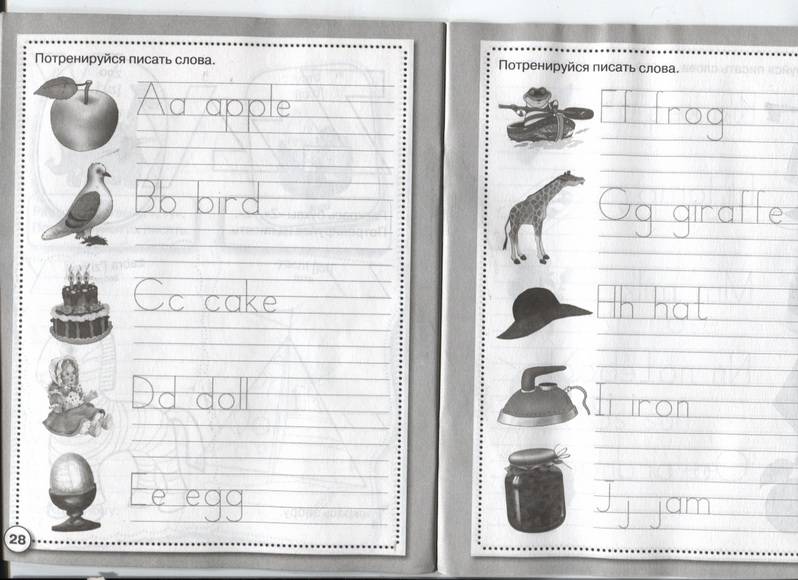 Потренируйся писать слова.
Aa apple
Bb bird
Cc cake
Dd doll
Ee egg
28
Потренируйся писать слова.
Ff frog
Gg giraffe
Hh hat
Ii iron
Jj jam